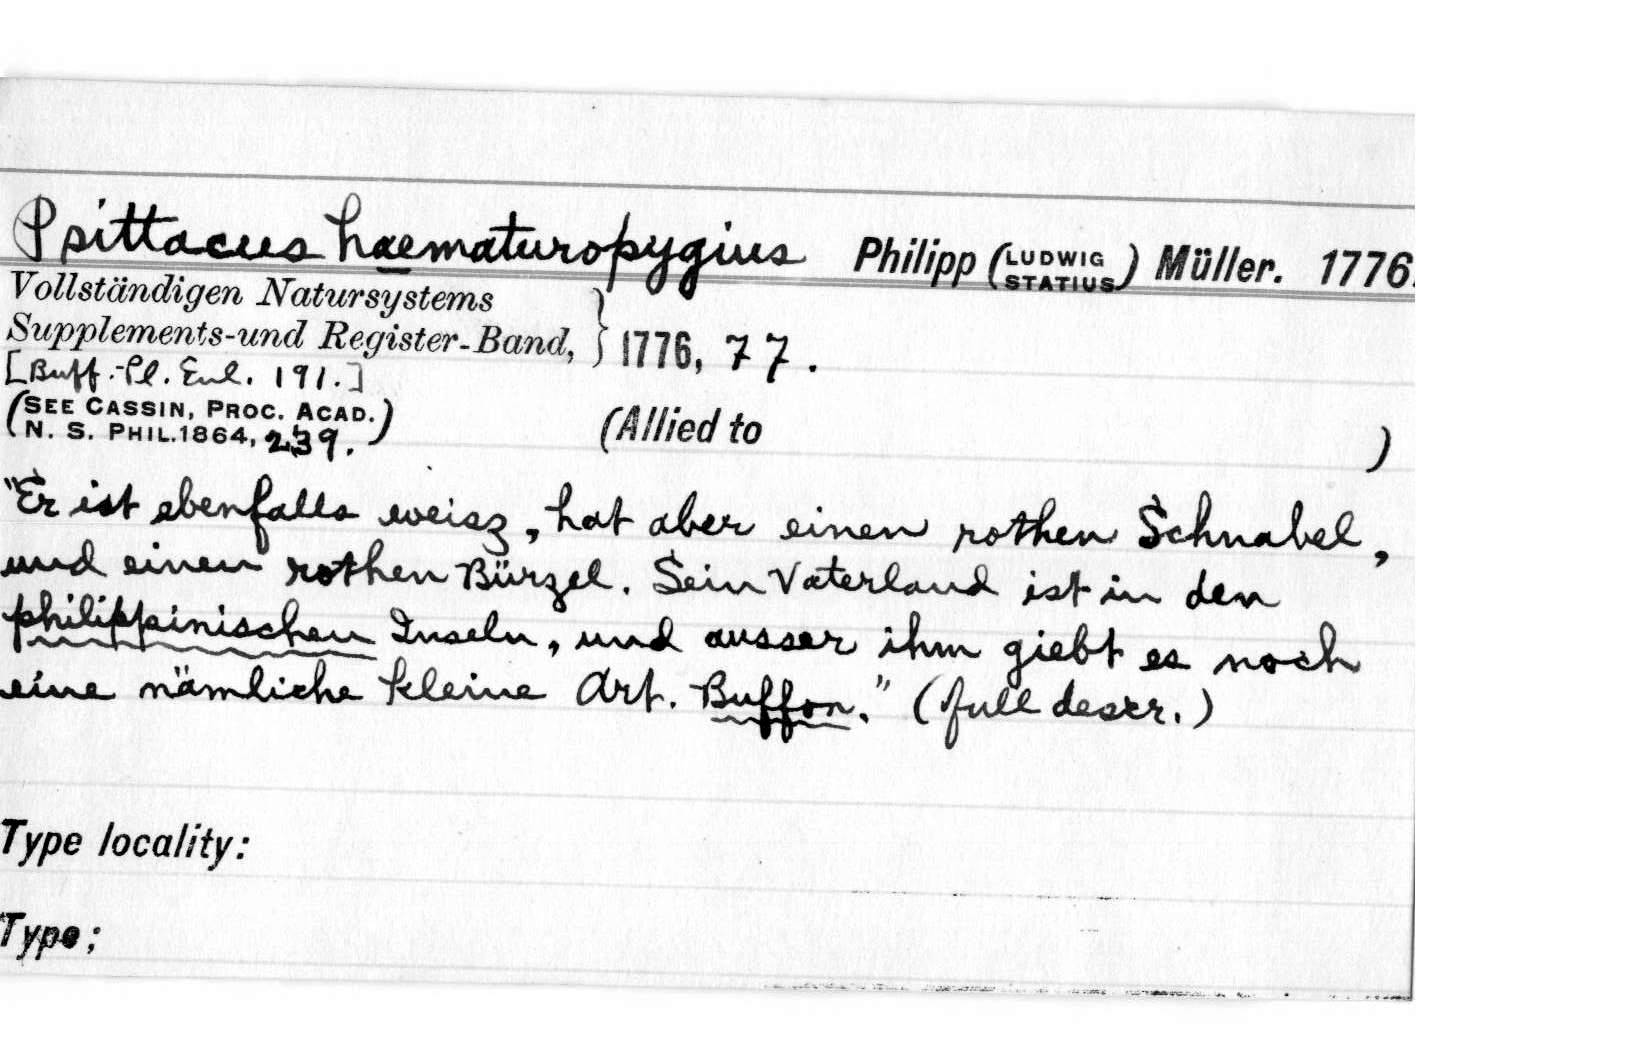 Psittacus haematuropygius Philipp (LUDWIG STATIUS) Müller. 1776.
Vollständigen Natursystems
Supplements-und Register-Band, } 1776, 77.
[Buff. Pl. Enl. 191.]
(SEE CASSIN, PROC. ACAD.
N. S. PHIL. 1864, 239.) (Allied to )
"Er ist ebenfalls weisz, hat aber einen rothen Schnabel,
und einen rothen Bürzel. Sein Vaterland ist in den
philippinischen Inseln, und ausser ihm giebt es noch
eine nämliche kleine Art. Buffon." (full descr.)
Type locality:
Type;